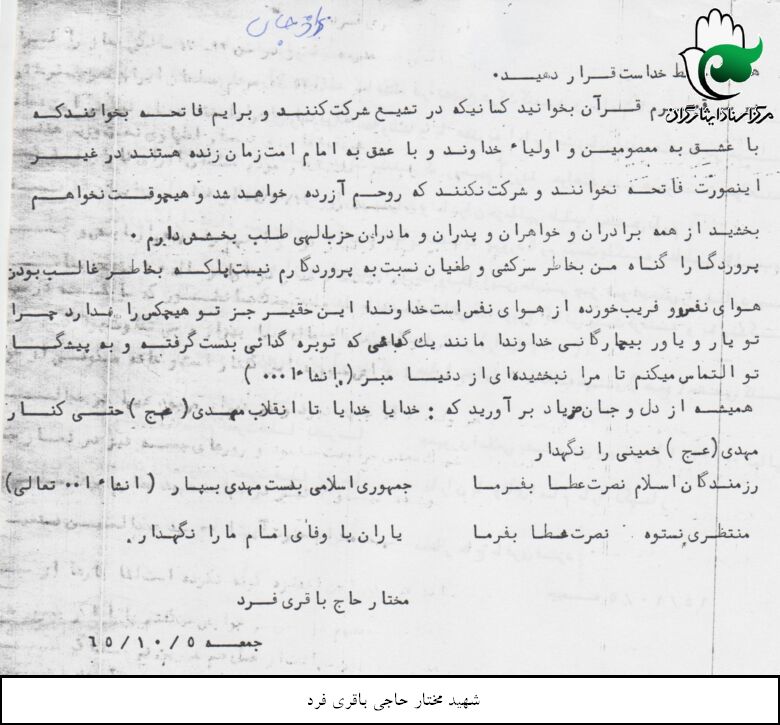 مرکز اسناد ایثارگران
خط خداست قرار دهید.
قرآن بخوانید کسانیکه در تشیع شرکت کنند و برایم فاتحه بخوانند که
با عشق به معصومین و اولیاء خداوند و با عشق به امام امت زمان زنده هستند در غیر
اینصورت فاتحه نخوانند و شرکت نکنند که روحم آزرده خواهد شد و هیچوقت نخواهم
بخشید از همه برادران و خواهران و پدران و مادران حزب الهی طلب بخشش دارم .
پروردگارا گناه من بخاطر سرکشی و طغیان نسبت به پروردگارم نیست بلکه بخاطر غالب بودن
هوای نفس و فریب خورده از هوای نفس است خداوندا این حقیر جز تو هیچکس را ندارد چرا
تو یار و یاور بیچارگانی خداوندا مانند یک گدائی که توبره گدائی بدست گرفته و به پیشگاه
تو التماس میکنم تا مرا نبخشیده ای از دنیا مبر (انشاءا...)
همیشه از دل و جان فریاد بر آورید که : خدایا خدایا تا انقلاب مهدی (عج) حتی کنار
مهدی (عج) خمینی را نگهدار
رزمندگان اسلام نصرت عطا بفرما جمهوری اسلامی بدست مهدی بسپار (انشاءا.. تعالی)
منتظری نستوه نصرت عطا بفرما یاران با وفای امام ما را نگهدار .
مختار حاج باقری فرد
جمعه ۶۵/۱۰/۵
شهید مختار حاجی باقری فرد